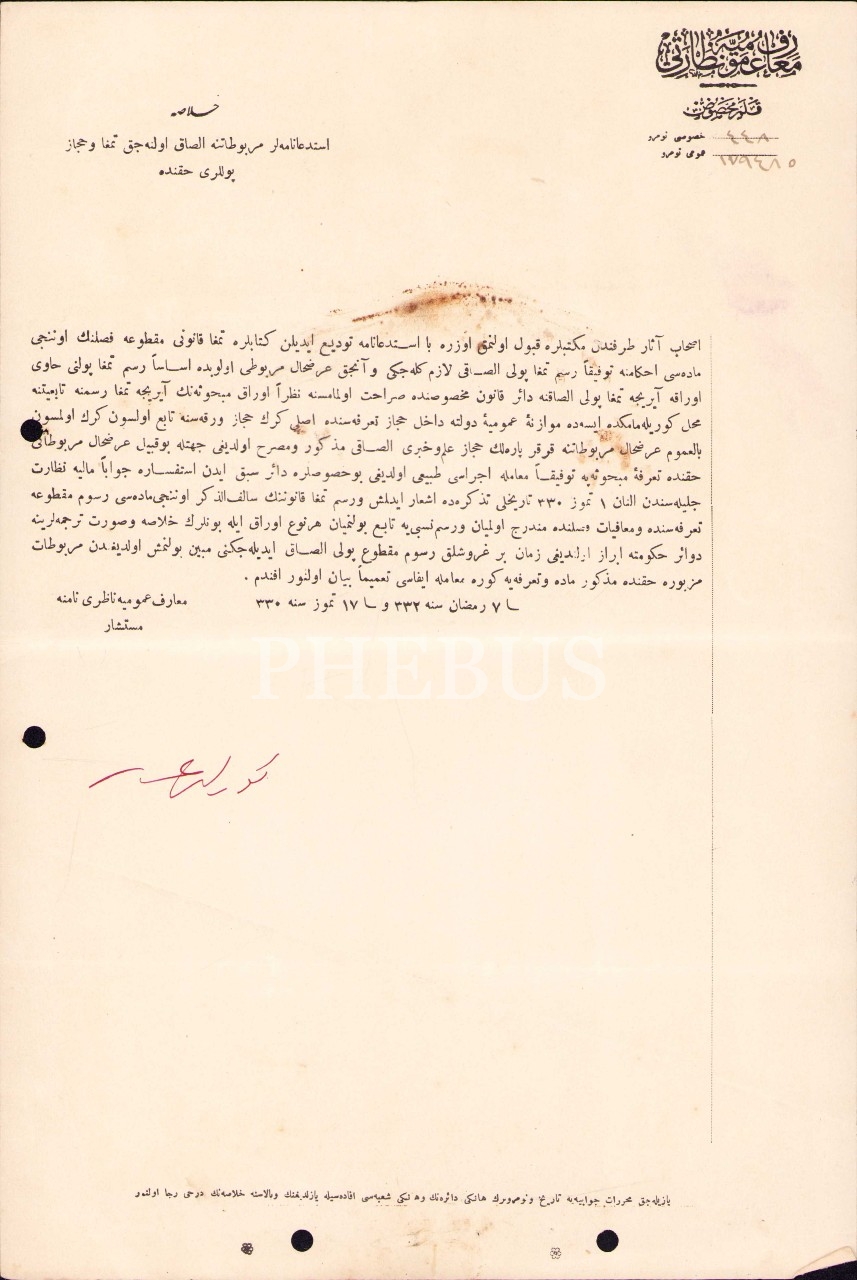 معارف عمومیه نظارتی
قلم مخصوص
خصوصی نومرو ٤٤٨
عمومی نومرو ١٧٩٤٨٥
خلاصه
استدعانامه‌لر مربوطاتنه الصاق اولنه‌جق تمغا و حجاز
پوللری حقنده
اصحاب آثار طرفندن مکتبلره قبول اولنمق اوزره با استدعانامه تودیع ایدیلن کتابلره تمغا قانونی مقطوعه فصلنك اوننجی
ماده‌سی احکامنه توفیقاً رسم تمغا پولی الصاقی لازم کله‌جکی و آنجق عرضحال مربوطی اولوبده اساساً رسم تمغا پولنی حاوی
اوراقه آیریجه تمغا پولی الصاقنه دائر قانون مخصوصنده صراحت اولمامسنه نظراً اوراق مبحوثه‌نك آیریجه تمغا رسمنه تابعیتنه
محل کوریله‌مامکده ایسه‌ده موازنهٔ عمومیهٔ دولته داخل حجاز تعرفه‌سنده اصلی کرك حجاز ورقه‌سنه تابع اولسون کرك اولمسون
بالعموم عرضحال مربوطاتنه قرقر پاره‌لك حجاز علم‌وخبری الصاقی مذکور ومصرح اولدیغی جهتله بوقبیل عرضحال مربوطاتی
حقنده تعرفهٔ مبحوثه‌یه توفیقاً معامله اجراسی طبیعی اولدیغی بوخصوصلره دائر سبق ایدن استفساره جواباً مالیه نظارت
جلیله‌سندن النان ١ تموز ٣٣٠ تاریخلی تذکره‌ده اشعار ایدلش ورسم تمغا قانوننك سالف‌الذکر اوننجی‌ماده‌سی رسوم مقطوعه
تعرفه‌سنده ومعافیات فصلنده مندرج اولیان ورسم‌نسبی‌یه تابع بولنمیان هرنوع اوراق ایله بونلرك خلاصه وصورت ترجمه‌لرینه
دوائر حکومته ابراز ایلدیغی زمان بر غروشلق رسوم مقطوع پولی الصاق ایدیله‌جکنی مبین بولنمش اولدیغندن مربوطات
مزبوره حقنده مذکور ماده وتعرفه‌یه کوره معامله ایفاسی تعمیماً بیان اولنور افندم .
٧ رمضان سنه ٣٣٢ و ١٧ تموز سنه ٣٣٠
معارف عمومیه ناظری نامنه
مستشار
PHEBUS
یازیله‌جق محررات جوابیه‌یه تاریخ ونومرونك هانکی دائره‌نك وهانکی شعبه‌سی افاده‌سیله یازلدیغنك وبالاسنه خلاصه‌نك درجی رجا اولنور